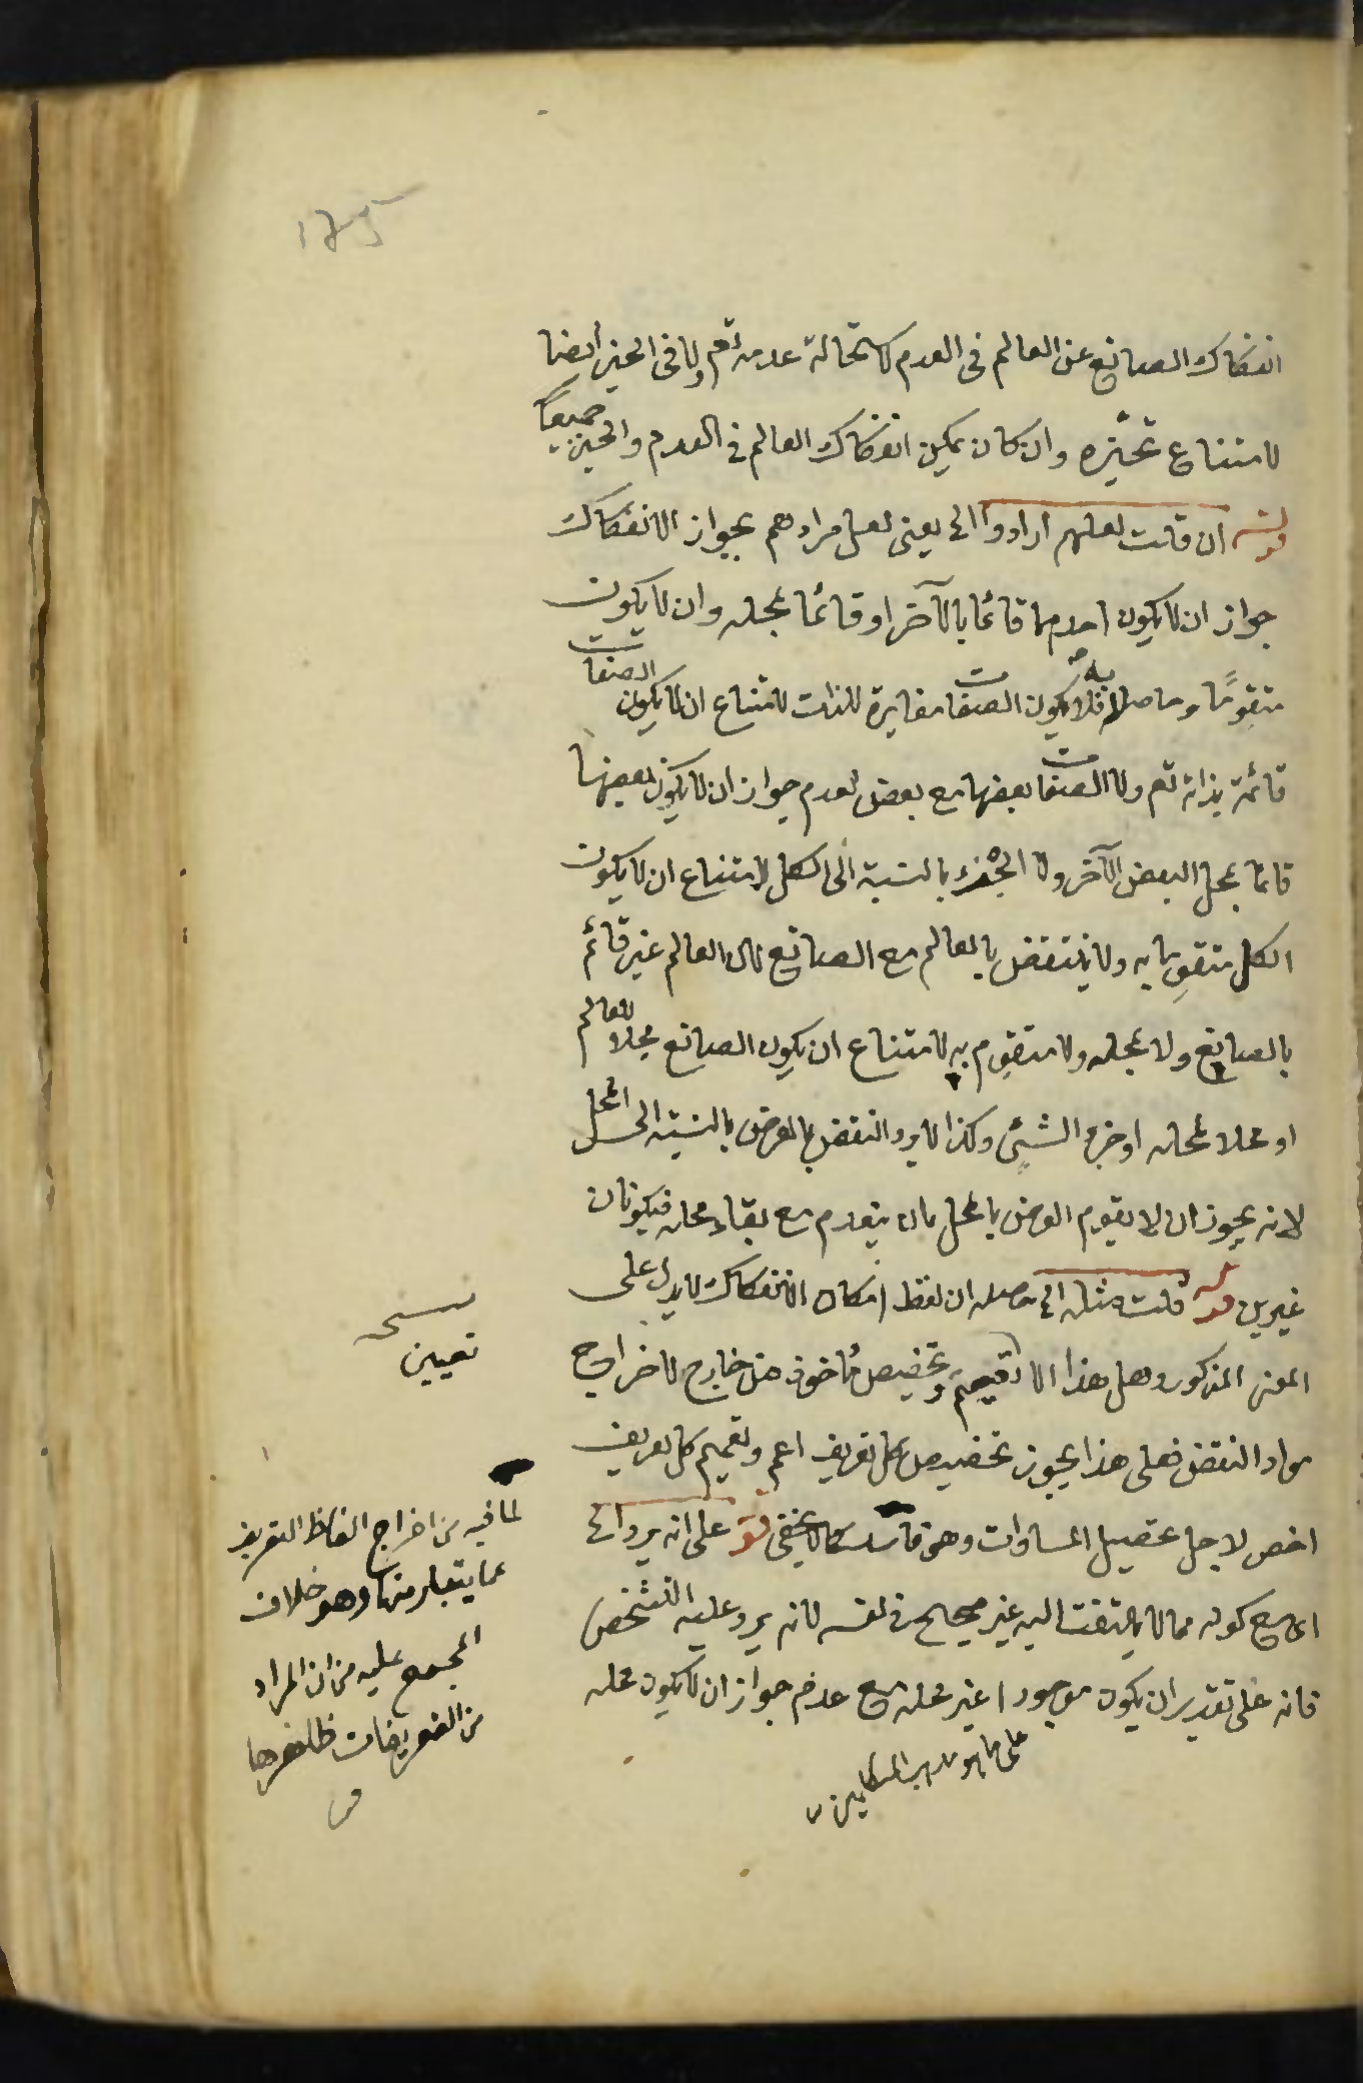 انفكاك الصانع عن العالم فى العدم لاستحالة عدمه تعم ولا فى الحيز ايضا
لامتناع تحيّزه وان كان يمكن انفكاك العالم فى العدم والحيز جميعا
قوله ان قلت لعلهم ارادوا الخ يعنى لعل مرادهم بجواز الانفكاك
جواز ان لا يكون احدهما قائما بالآخر او قائما بمحله وان لا يكون
متقوِمًا به وحاصله فلا يكون الصفات مغايرة للذات لامتناع ان لا يكون الصفات
قائمة بذاته تعم ولا الصفات بعضها مع بعض لعدم جواز ان لا يكون بعضها
قائما بمحل البعض الآخر ولا الجزء بالنسبة الى الكل لامتناع ان لا يكون
الكل متقوِما به ولا ينتقض بالعالم مع الصانع لان العالم غير قائم
بالصانع ولا بمحله ولا متقوِم به لامتناع ان يكون الصانع محلا للعالم
او محلا لمحله او جزء الشئ وكذا لا يرد النقض بالعرض بالنسبة الى المحل
لانه يجوز ان لا يقوم العرض بالمحل بان ينعدم مع بقاء محله فيكونان
غيرين قوله قلت مثله الخ حاصله ان لفظ امكان الانفكاك لا يدل على
المعنى المذكور وهل هذا الا تعميم وتخصيص مأخوذ من خارج لاخراج
مواد النقض فعلى هذا يجوز تخصيص كل تعريف اعم وتعميم كل تعريف
اخص لاجل تحصيل المساوات وهو فاسد كما لا يخفى قوله على انه يرد الخ
اى مع كونه مما لا يلتفت اليه غير صحيح فى نفسه لانه يرد عليه التشخص
فانه على تقدير ان يكون موجودا غير محله مع عدم جواز ان لا يكون محله
على ما هو مذهب المتكلمين
نسخه
تعيين
لما فيه من اخراج الفاظ التعريف
عما يتبادر منها وهو خلاف
المجمع عليه من ان المراد
من التعريفات ظاهرها